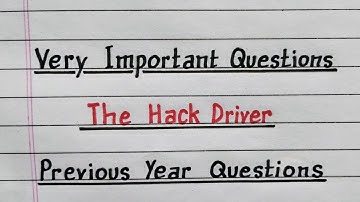 Very Important Questions
The Hack Driver
Previous Year Questions